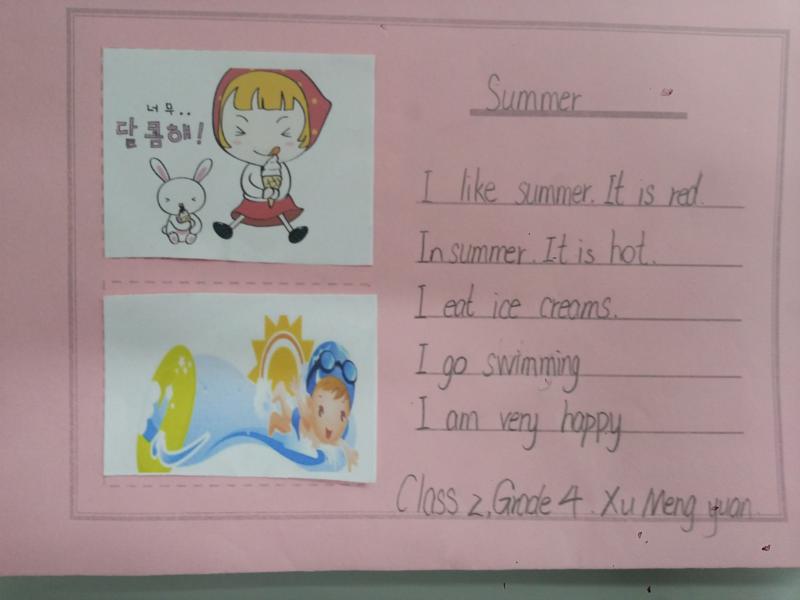 너무..
달콤해!
Summer
I like summer. It is red.
In summer. It is hot.
I eat ice creams.
I go swimming
I am very happy
Class 2, Grade 4. Xu Meng yuan